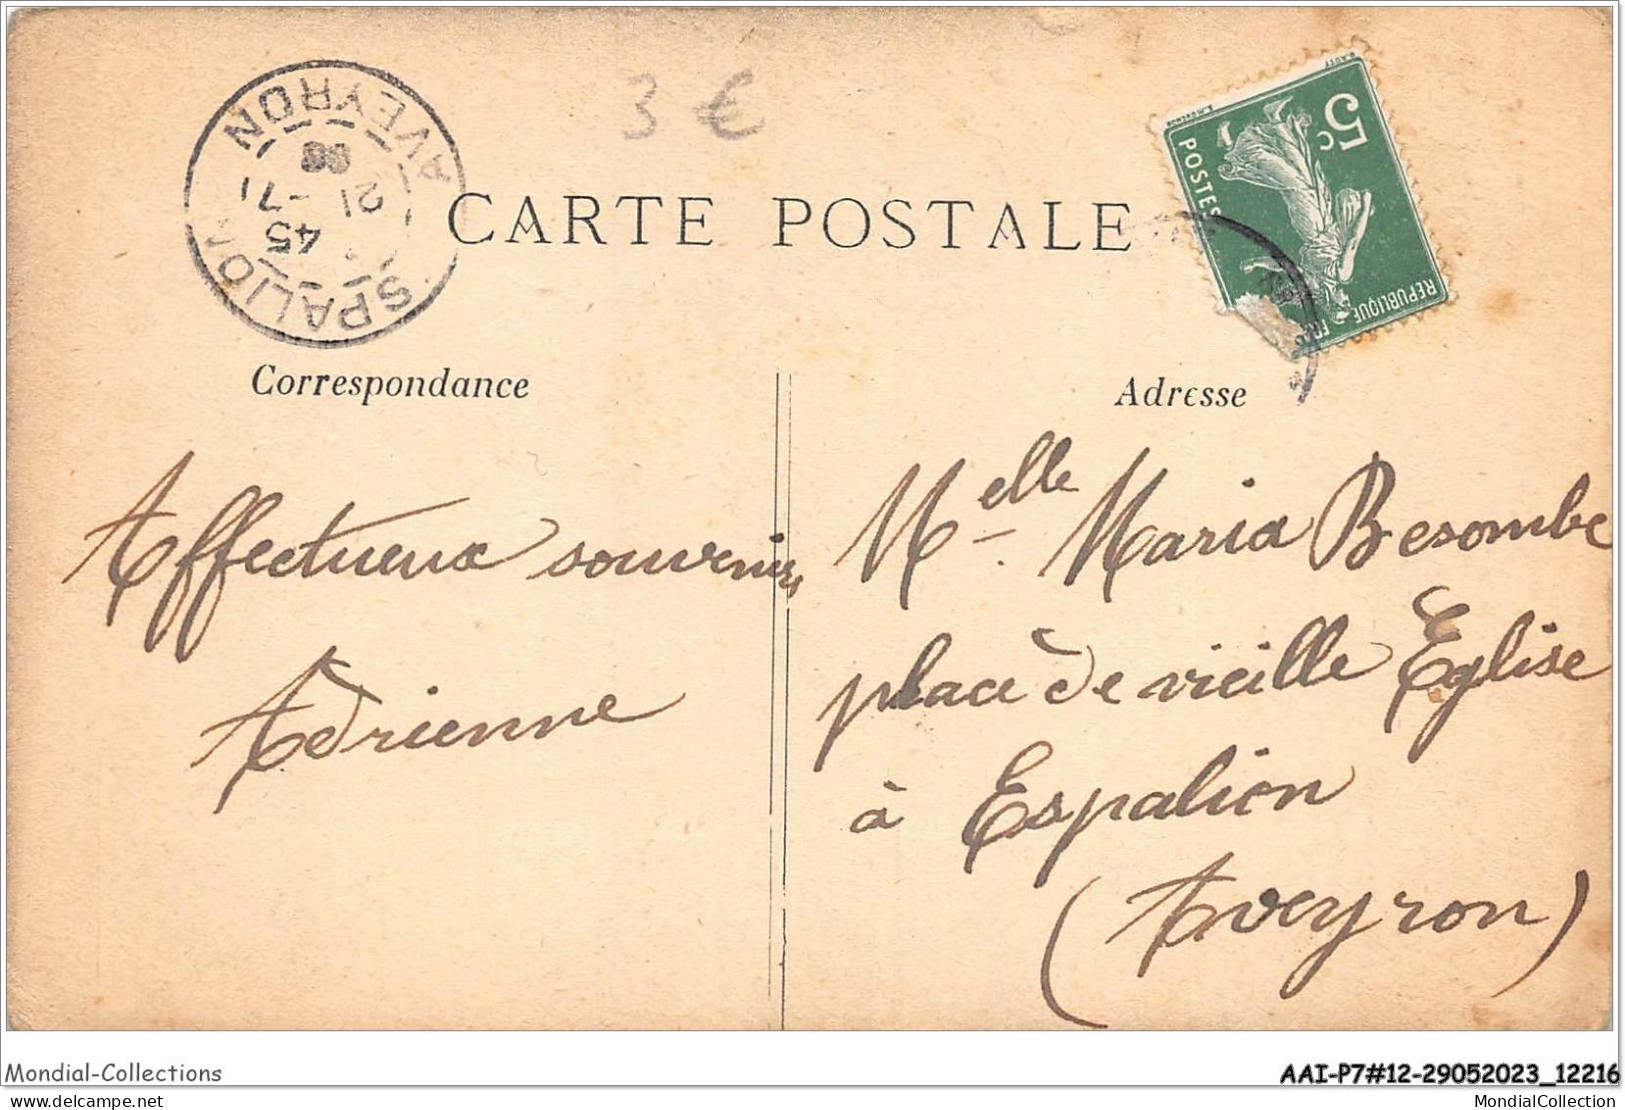 3 €
CARTE POSTALE
ESPALION
AVEYRON
45
21 -7
5c
POSTES
REPUBLIQUE
Correspondance
Adresse
Affectueux souvenir,
Adrienne
Melle Maria Besombe
place de vieille Église
à Espalion
(Aveyron)
Mondial-Collections
AAI-P7#12-29052023_12216
delcampe.net
MondialCollection